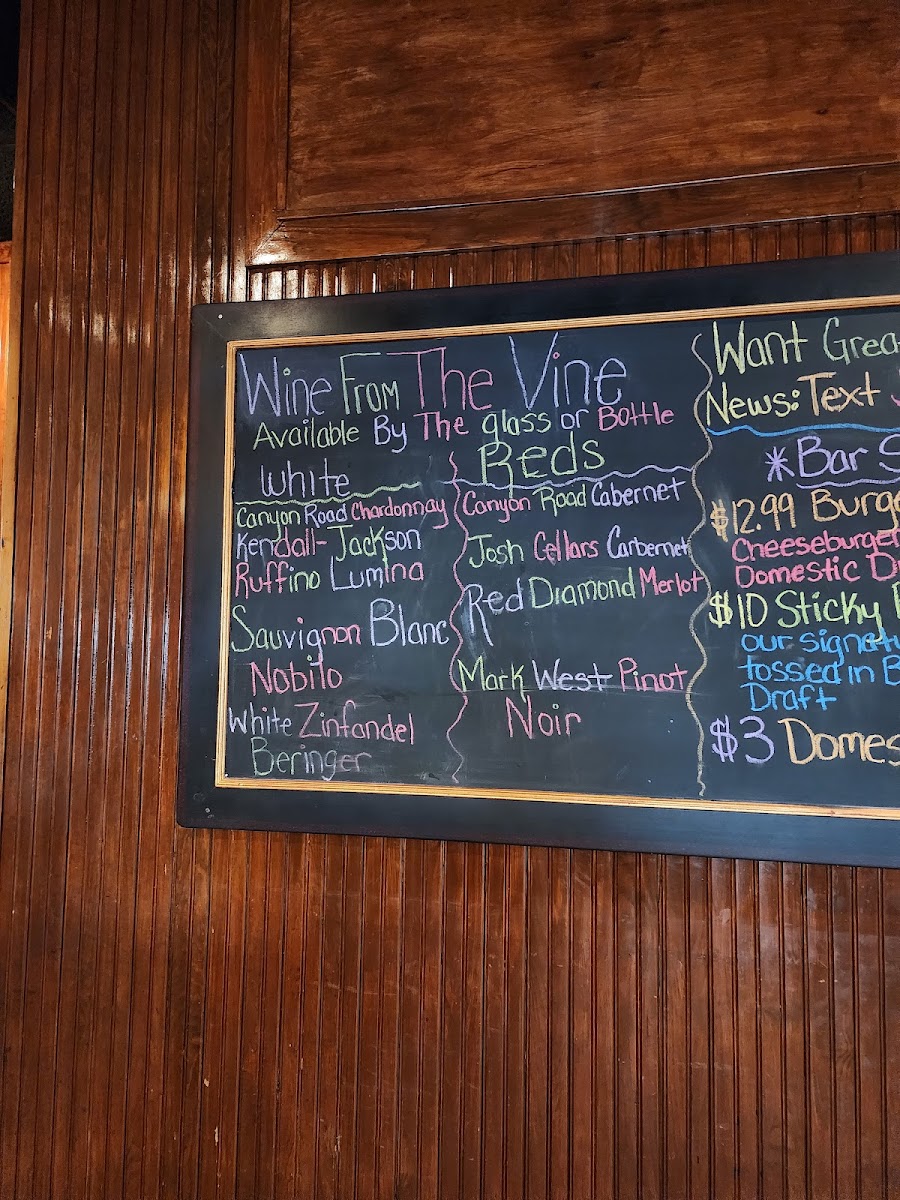 Wine From The Vine
Available By The glass or Bottle
White
Canyon Road Chardonnay
Kendall-Jackson
Ruffino Lumina
Sauvignon Blanc
Nobilo
White Zinfandel
Beringer
Reds
Canyon Road Cabernet
Josh Cellars Carbernet
Red Diamond Merlot
Mark West Pinot
Noir
Want
News: Text
*Bar
$12.99
Cheeseburger
Domestic
$10 Sticky
our
tossed in
Draft
$3